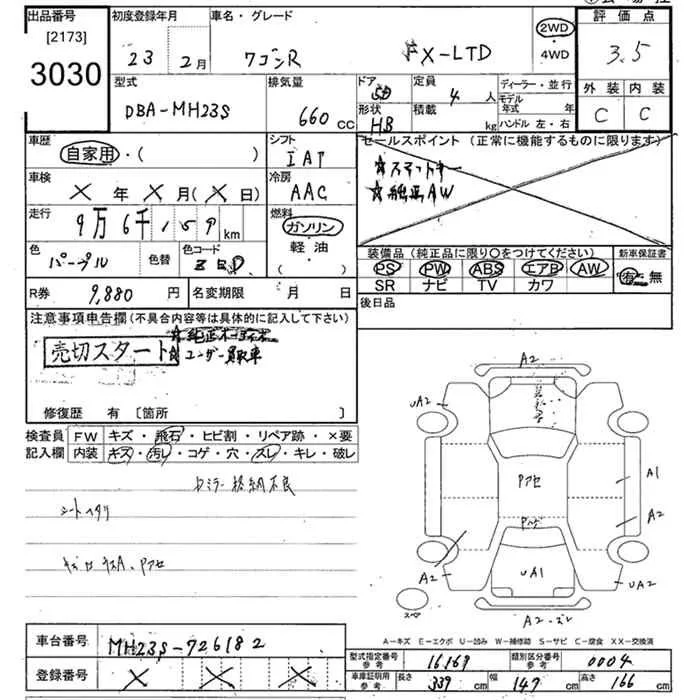 出品番号
[2173]
3030
初度登録年月
23 2月
車名・グレード
ワゴンR FX-LTD
2WD
・
4WD
評価点
3.5
外装 内装
C C
型式
DBA-MH23S
排気量
660 cc
ドア 5D
形状 HB
定員 4人
積載 kg
ディーラー・並行
モデル年式 年
ハンドル 左・右
車歴
自家用・( )
シフト
IAT
車検
X年X月(X日)
冷房
AAC
走行
9万6千159km
燃料
ガソリン
軽・油
( )
色
パープル
色替
色コード
セールスポイント (正常に機能するものに限ります)
★スマートキー
★純正AW
装備品 (純正品に限り○をつけてください)
PS PW ABS エアB AW
SR ナビ TV カワ
新車保証書
有・無
R券 9,880円
名変期限 月 日
後日品
注意事項申告欄(不具合内容等は具体的に記入して下さい)
売切スタート
★ユーザー買取車
修復歴 有 〔箇所 〕
検査員記入欄
FW キズ・飛石・ヒビ割・リペア跡・×要
内装 キズ・汚レ・コゲ・穴・スレ・キレ・破レ
Rミラー格納不良
シートヘタリ
A2
uA2
Pアセ
A1
A2
Pハゲ
A2
uA1
uA2
スペア
A2
A-キズ E-エクボ U-凹み W-補修跡 S-サビ C-腐食 XX-交換済
車台番号 MH23S-726182
登録番号 X X X
型式指定番号 参考 16169
類別区分番号 参考 0004
車庫証明用 参考 長さ 339 cm 幅 147 cm 高さ 166 cm